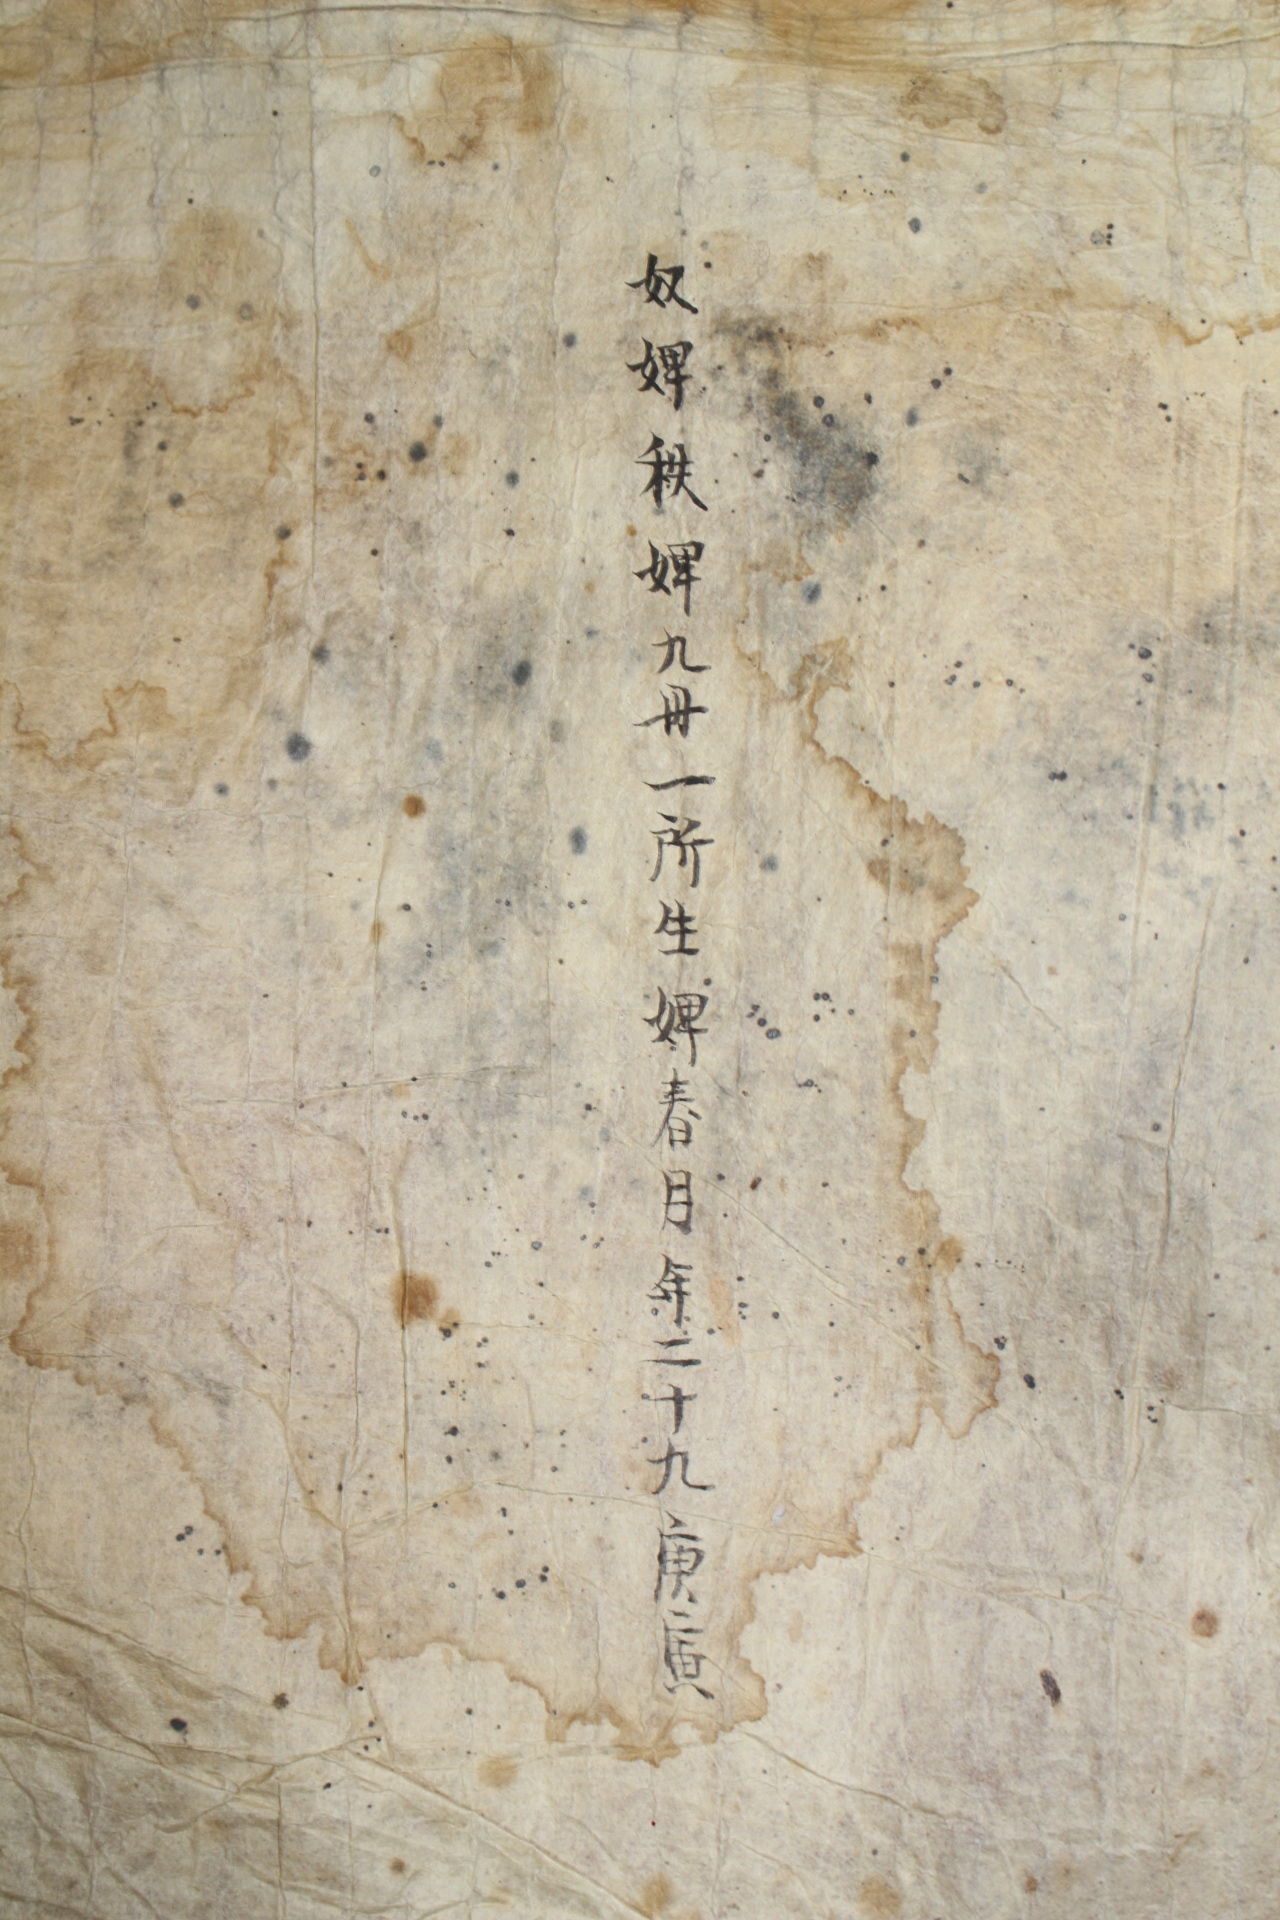 奴婢秩婢九丹一所生婢春月年二十九庚寅